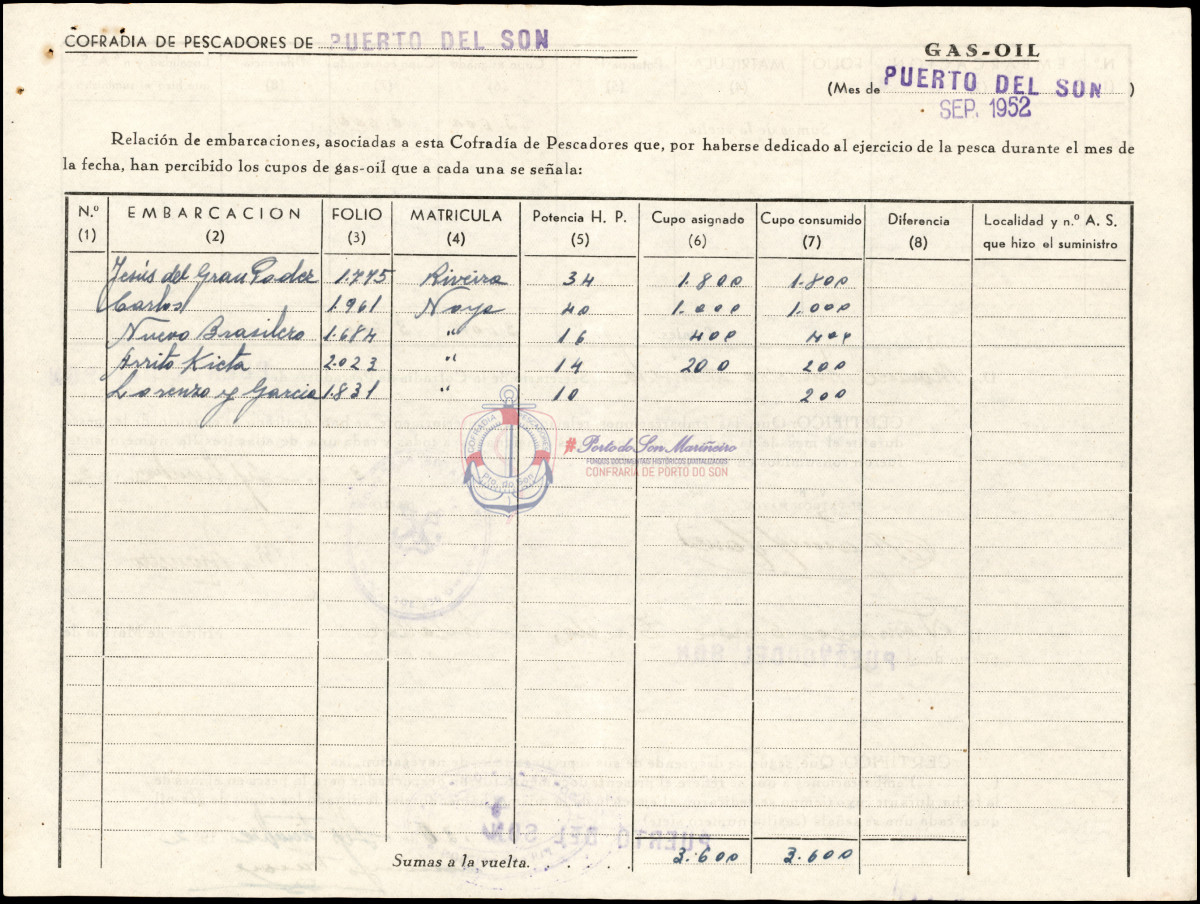 COFRADIA DE PESCADORES DE PUERTO DEL SON
GAS-OIL
(Mes de PUERTO DEL SON )
SEP. 1952
Relación de embarcaciones, asociadas a esta Cofradía de Pescadores que, por haberse dedicado al ejercicio de la pesca durante el mes de
la fecha, han percibido los cupos de gas-oil que a cada una se señala:
N.º EMBARCACION FOLIO MATRICULA Potencia H. P. Cupo asignado Cupo consumido Diferencia Localidad y n.º A. S.
(1) (2) (3) (4) (5) (6) (7) (8) que hizo el suministro
Jesús del Gran Poder 1.775 Riveira 34 1.800 1.800
Carlos 1.961 Noya 40 1.000 1.000
Nuevo Brasilero 1.684 " 16 400 400
2.023 " 14 200 200
Lorenzo y Garcia 1.831 " 10 200
COFRADIA PESCADORES
Pto. do Son
#Porto do Son Mariñeiro
FONDOS DOCUMENTAIS HISTÓRICOS DIXITALIZADOS
CONFRARÍA DE PORTO DO SON
PUERTO DEL SON
PUERTO DEL SON
Sumas a la vuelta. . . . . . 3.600 3.600